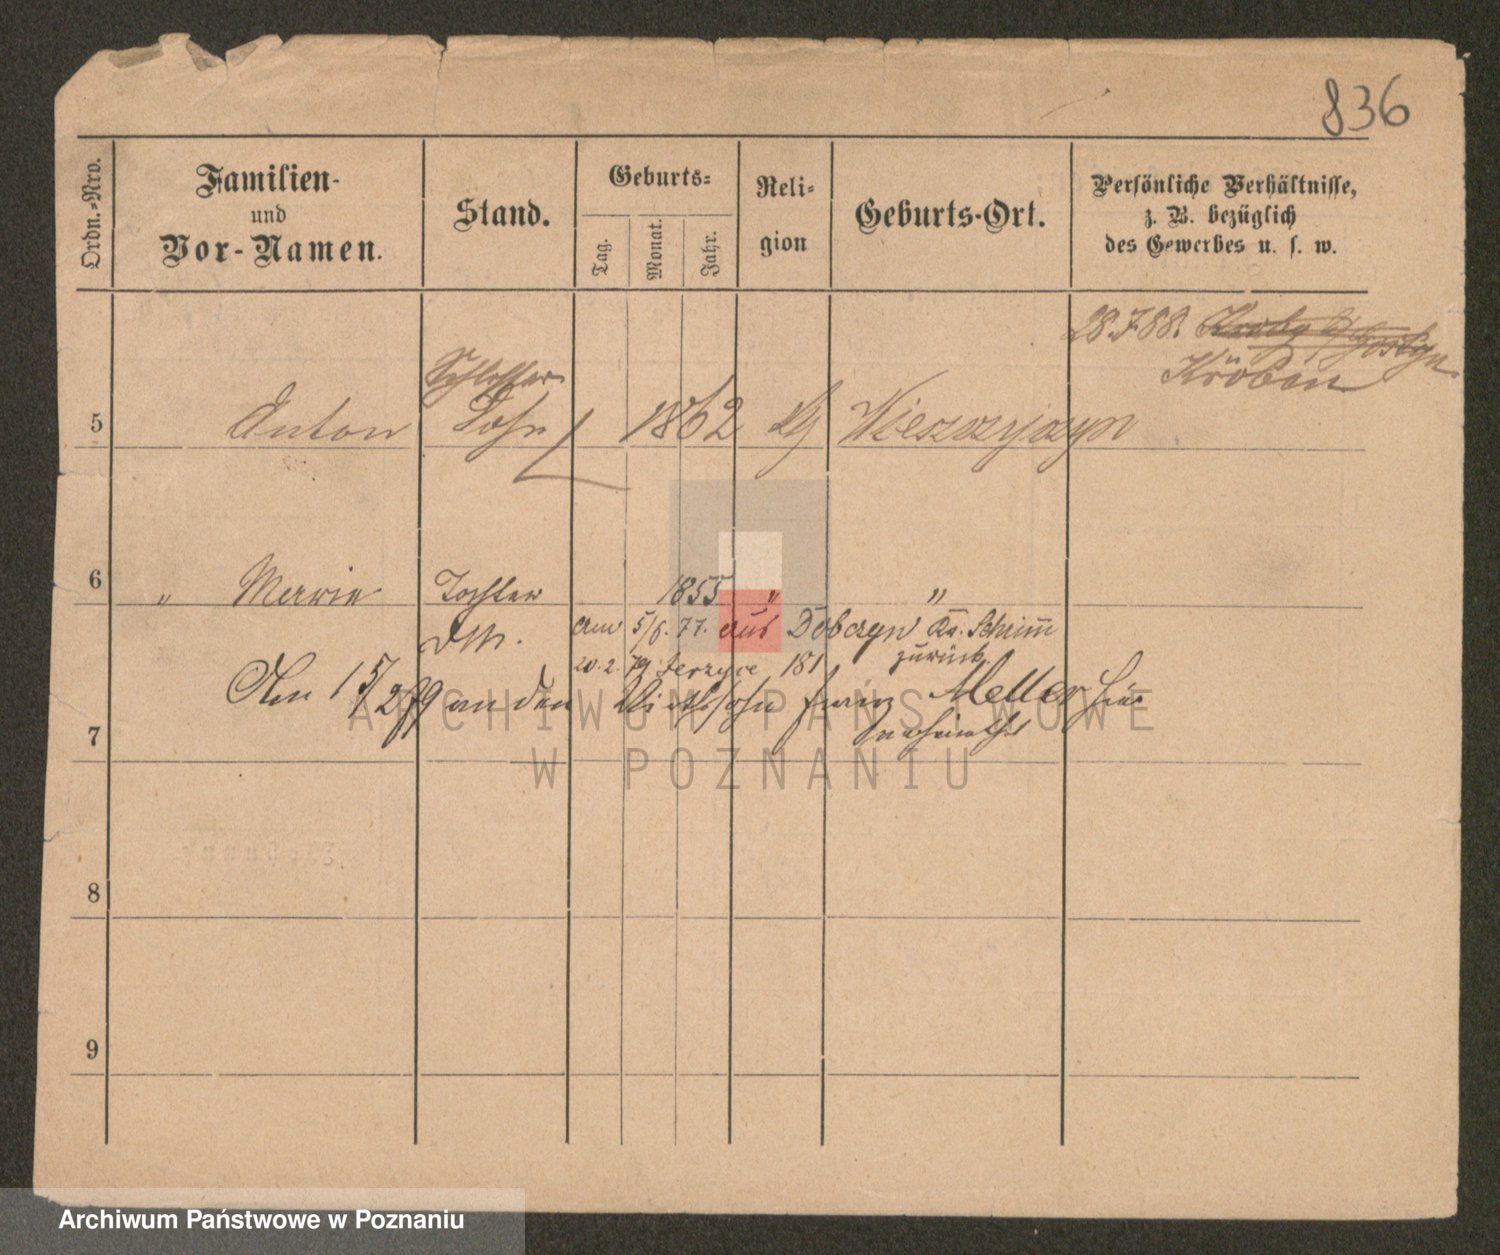 836
Ordn.-Nro.
Familien-
und
Vor-Namen.
Stand.
Geburts-
Tag.
Monat.
Jahr.
Reli-
gion
Geburts-Ort.
Persönliche Verhältnisse,
z. B. bezüglich
des Gewerbes u. s. w.
28.7.88. Kröben
Schlosser
5 Anton Sohn 1862 Wieszczyczyn
6 " Marie Tochter 1855 " "
DM. am 5/6. 77. aus Dobczyn Kr. Schrimm
zurück.
20.2.79 Jerzyce 181
Am 15/2 79 an den Wirthssohn Franz Meller hier
verheirathet
7
8
9
ARCHIWUM PAŃSTWOWE
W POZNANIU
Archiwum Państwowe w Poznaniu